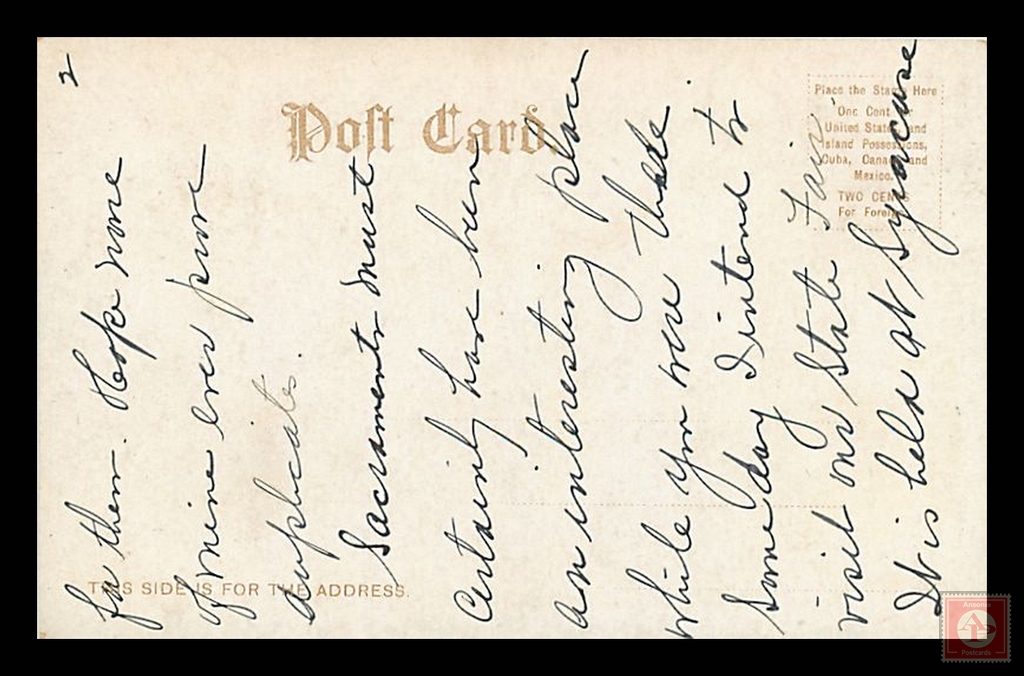 2
for them. Hope none
of mine ever prove
duplicates.
Sacramento must
Certainly have been
an interesting place
while you were there
Some day I intend to
visit our State Fair
It is held at Syracuse
Post Card.
Place the Stamp Here
One Cent for
United States and
Island Possessions,
Cuba, Canada and
Mexico.
TWO CENTS
For Foreign
THIS SIDE IS FOR THE ADDRESS.
Postcards